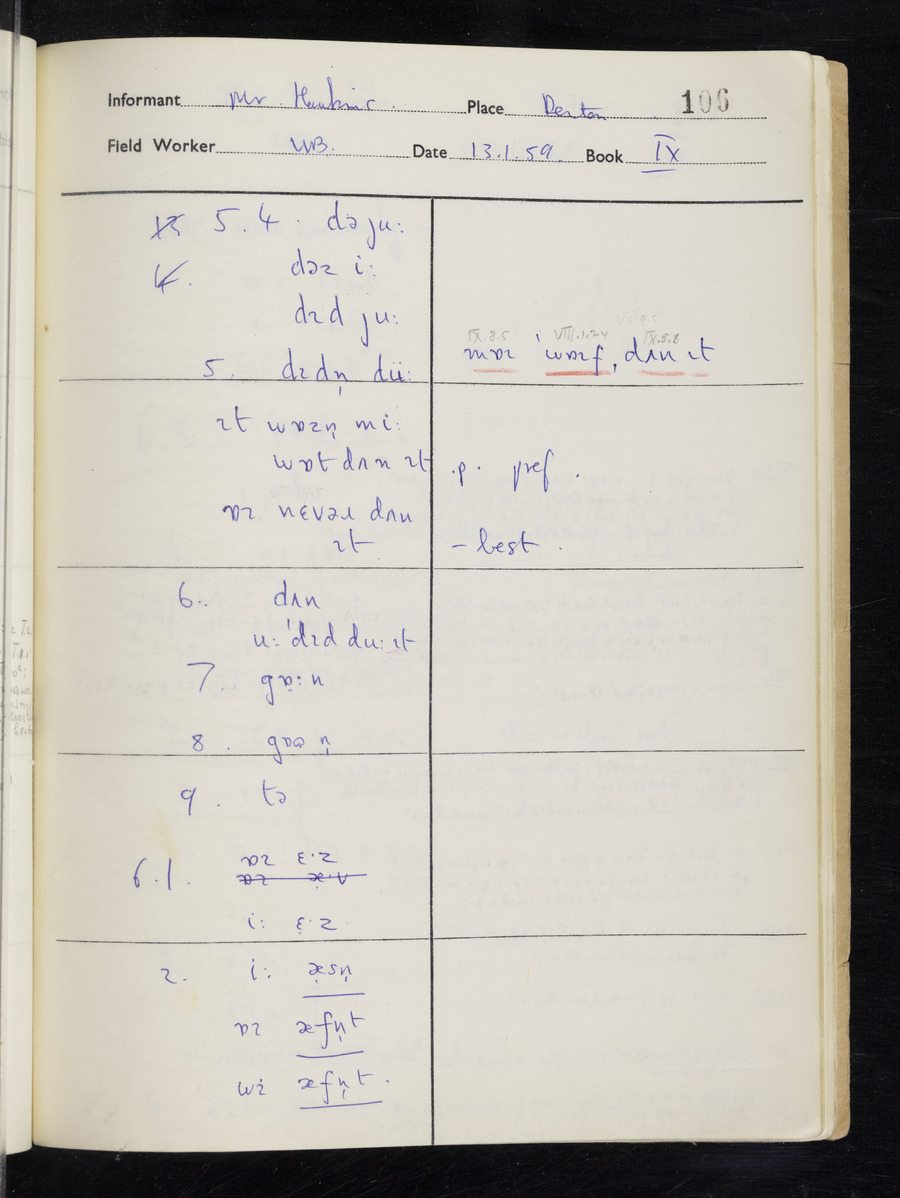 Informant Mr. Hawkins. Place Denton 106
Field Worker WB. Date 13.1.59. Book IX
5.4. də ju:
dəɪ i:
dɪd ju:
IX.8.5 VIII.1.24 IX.5.6
mɒɪ ˈwɒɪf, dʌn ɪt
5. dɪdn̩ dü:
ɪt wɒzn̩ mi:
wɒt dʌn ɪt .p. pref.
ɒɪ nɛvəɹ dʌn
ɪt – best.
6. dʌn
u: ˈdɪd du: ɪt
7. gɒ:n
8. gɒɪn
9. tə
6.1. ɒɪ ɛ·z
i: ɛ·z
2. i: æsn̩
ɒɪ æfn̩t
wi æfn̩t.